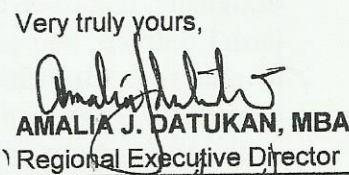 Very truly yours,
AMALIA J. DATUKAN, MBA
Regional Executive Director